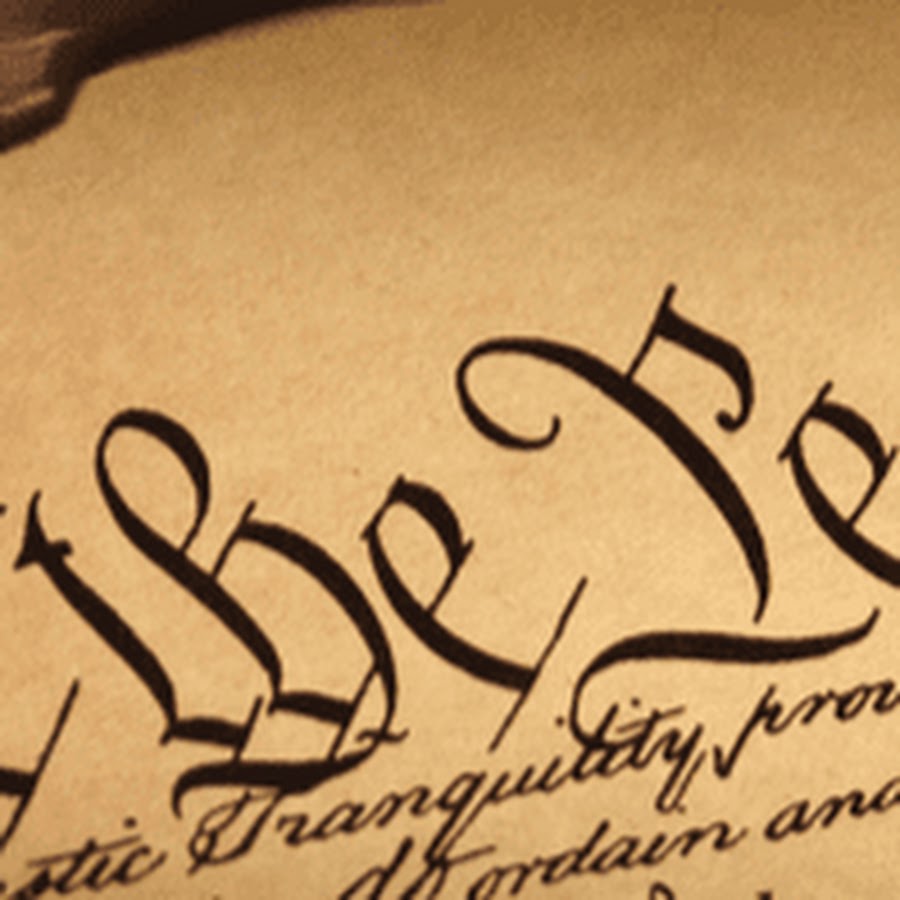 the Pe
stic Tranquility, prov
do ordain and